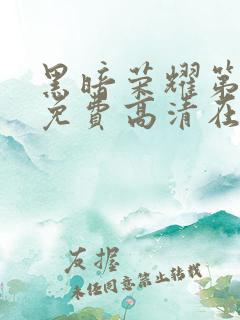 黑暗荣耀第
免費高清在
友握
未经同意禁止转载